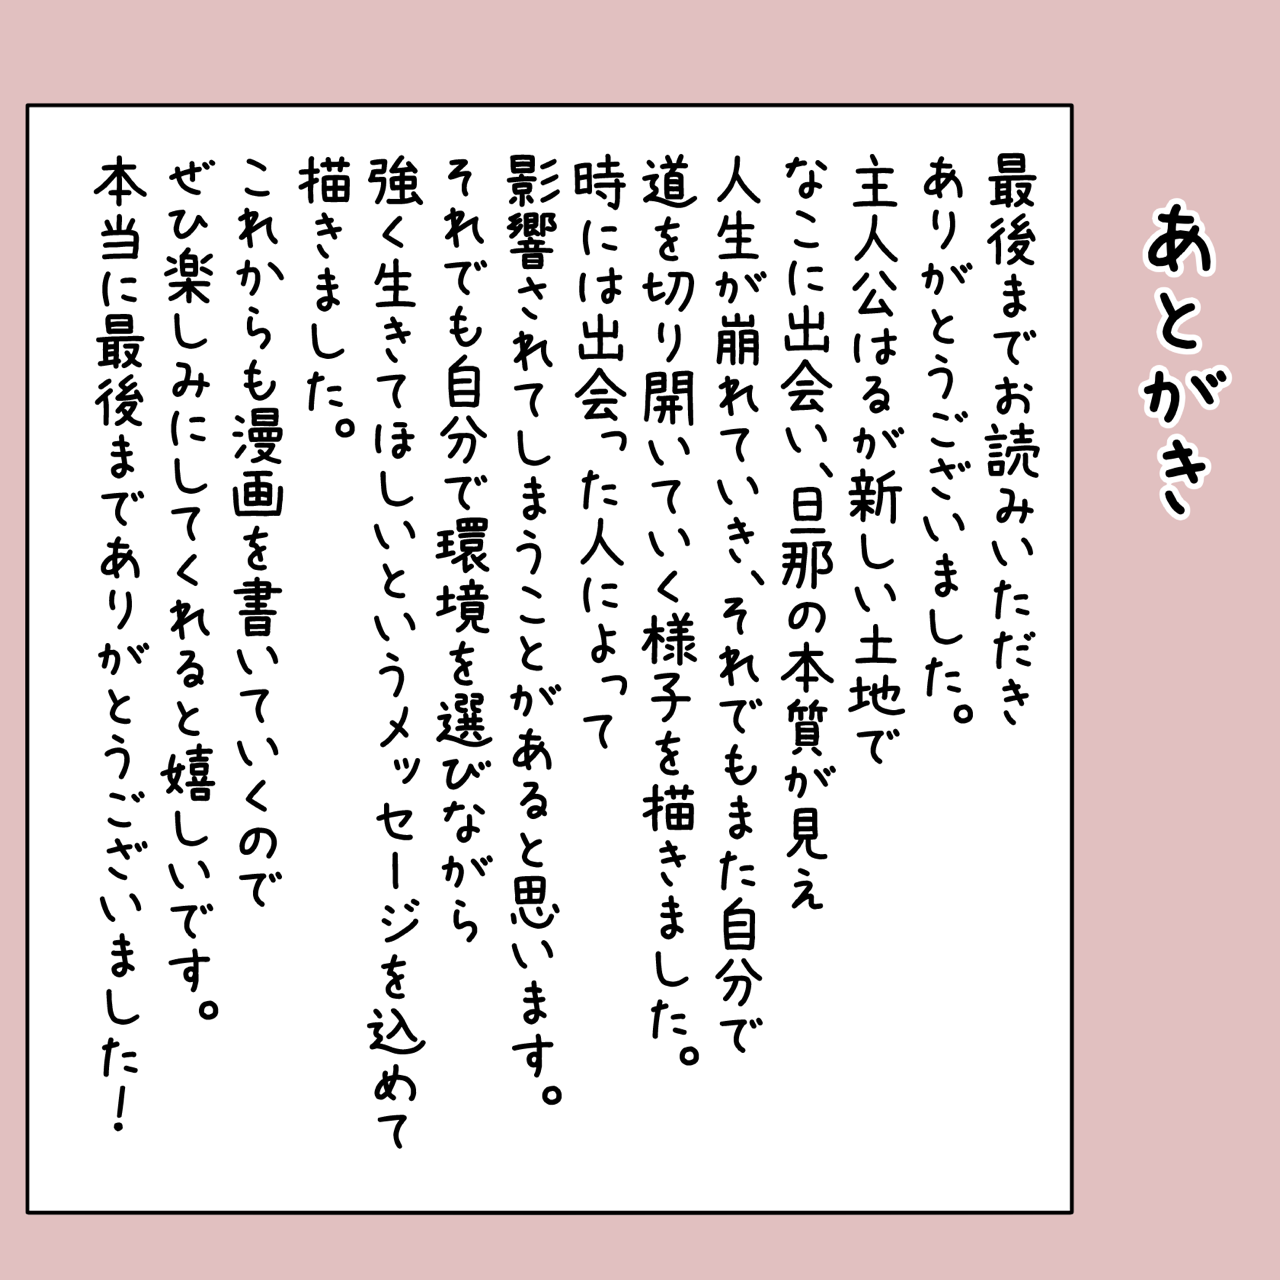 あとがき
最後までお読みいただき
ありがとうございました。
主人公はるが新しい土地で
なこに出会い、旦那の本質が見え
人生が崩れていき、それでもまた自分で
道を切り開いていく様子を描きました。
時には出会った人によって
影響されてしまうことがあると思います。
それでも自分で環境を選びながら
強く生きてほしいというメッセージを込めて
描きました。
これからも漫画を書いていくので
ぜひ楽しみにしてくれると嬉しいです。
本当に最後までありがとうございました！